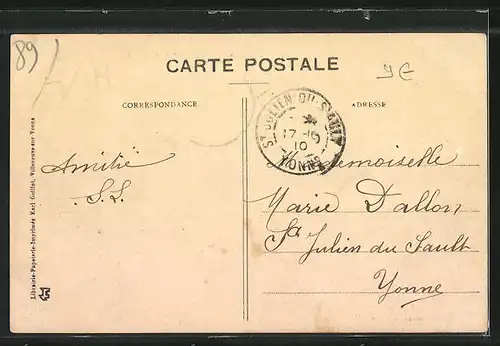 89
CARTE POSTALE
CORRESPONDANCE
ADRESSE
St JULIEN-DU-SAULT
17-10
10
YONNE
Amitié
S.L.
Mademoiselle
Marie Dallon
St Julien du Sault
Yonne
Librairie-Papeterie-Imprimerie Karl Guillot, Villeneuve-sur-Yonne